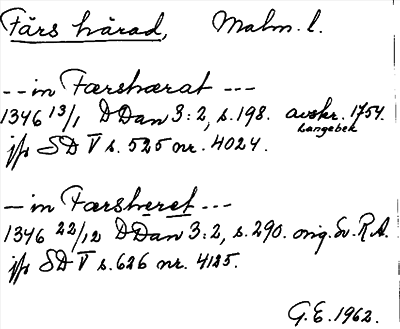 Färs härad, Malm. l.
-- in Færshærat ---
1346 13/1 DDan 3:2, s. 198. avskr. 1754.
Langebek
jfr SD V s. 525 nr. 4024.
-- in Færsheret ---
1346 22/12 DDan 3:2, s. 290. orig. Sv. R.A.
jfr SD V s. 626 nr. 4125.
G.E. 1962.